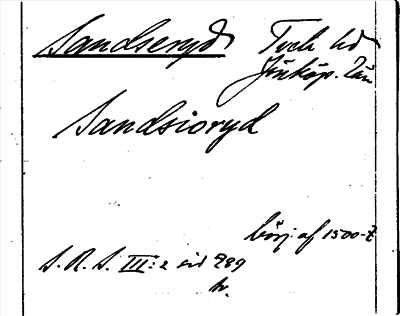 Sandseryd Tveta hd
Jönköp. län
Sandsioryd
börj. af 1500-t
S. R. S. III:2 sid 289
hr.